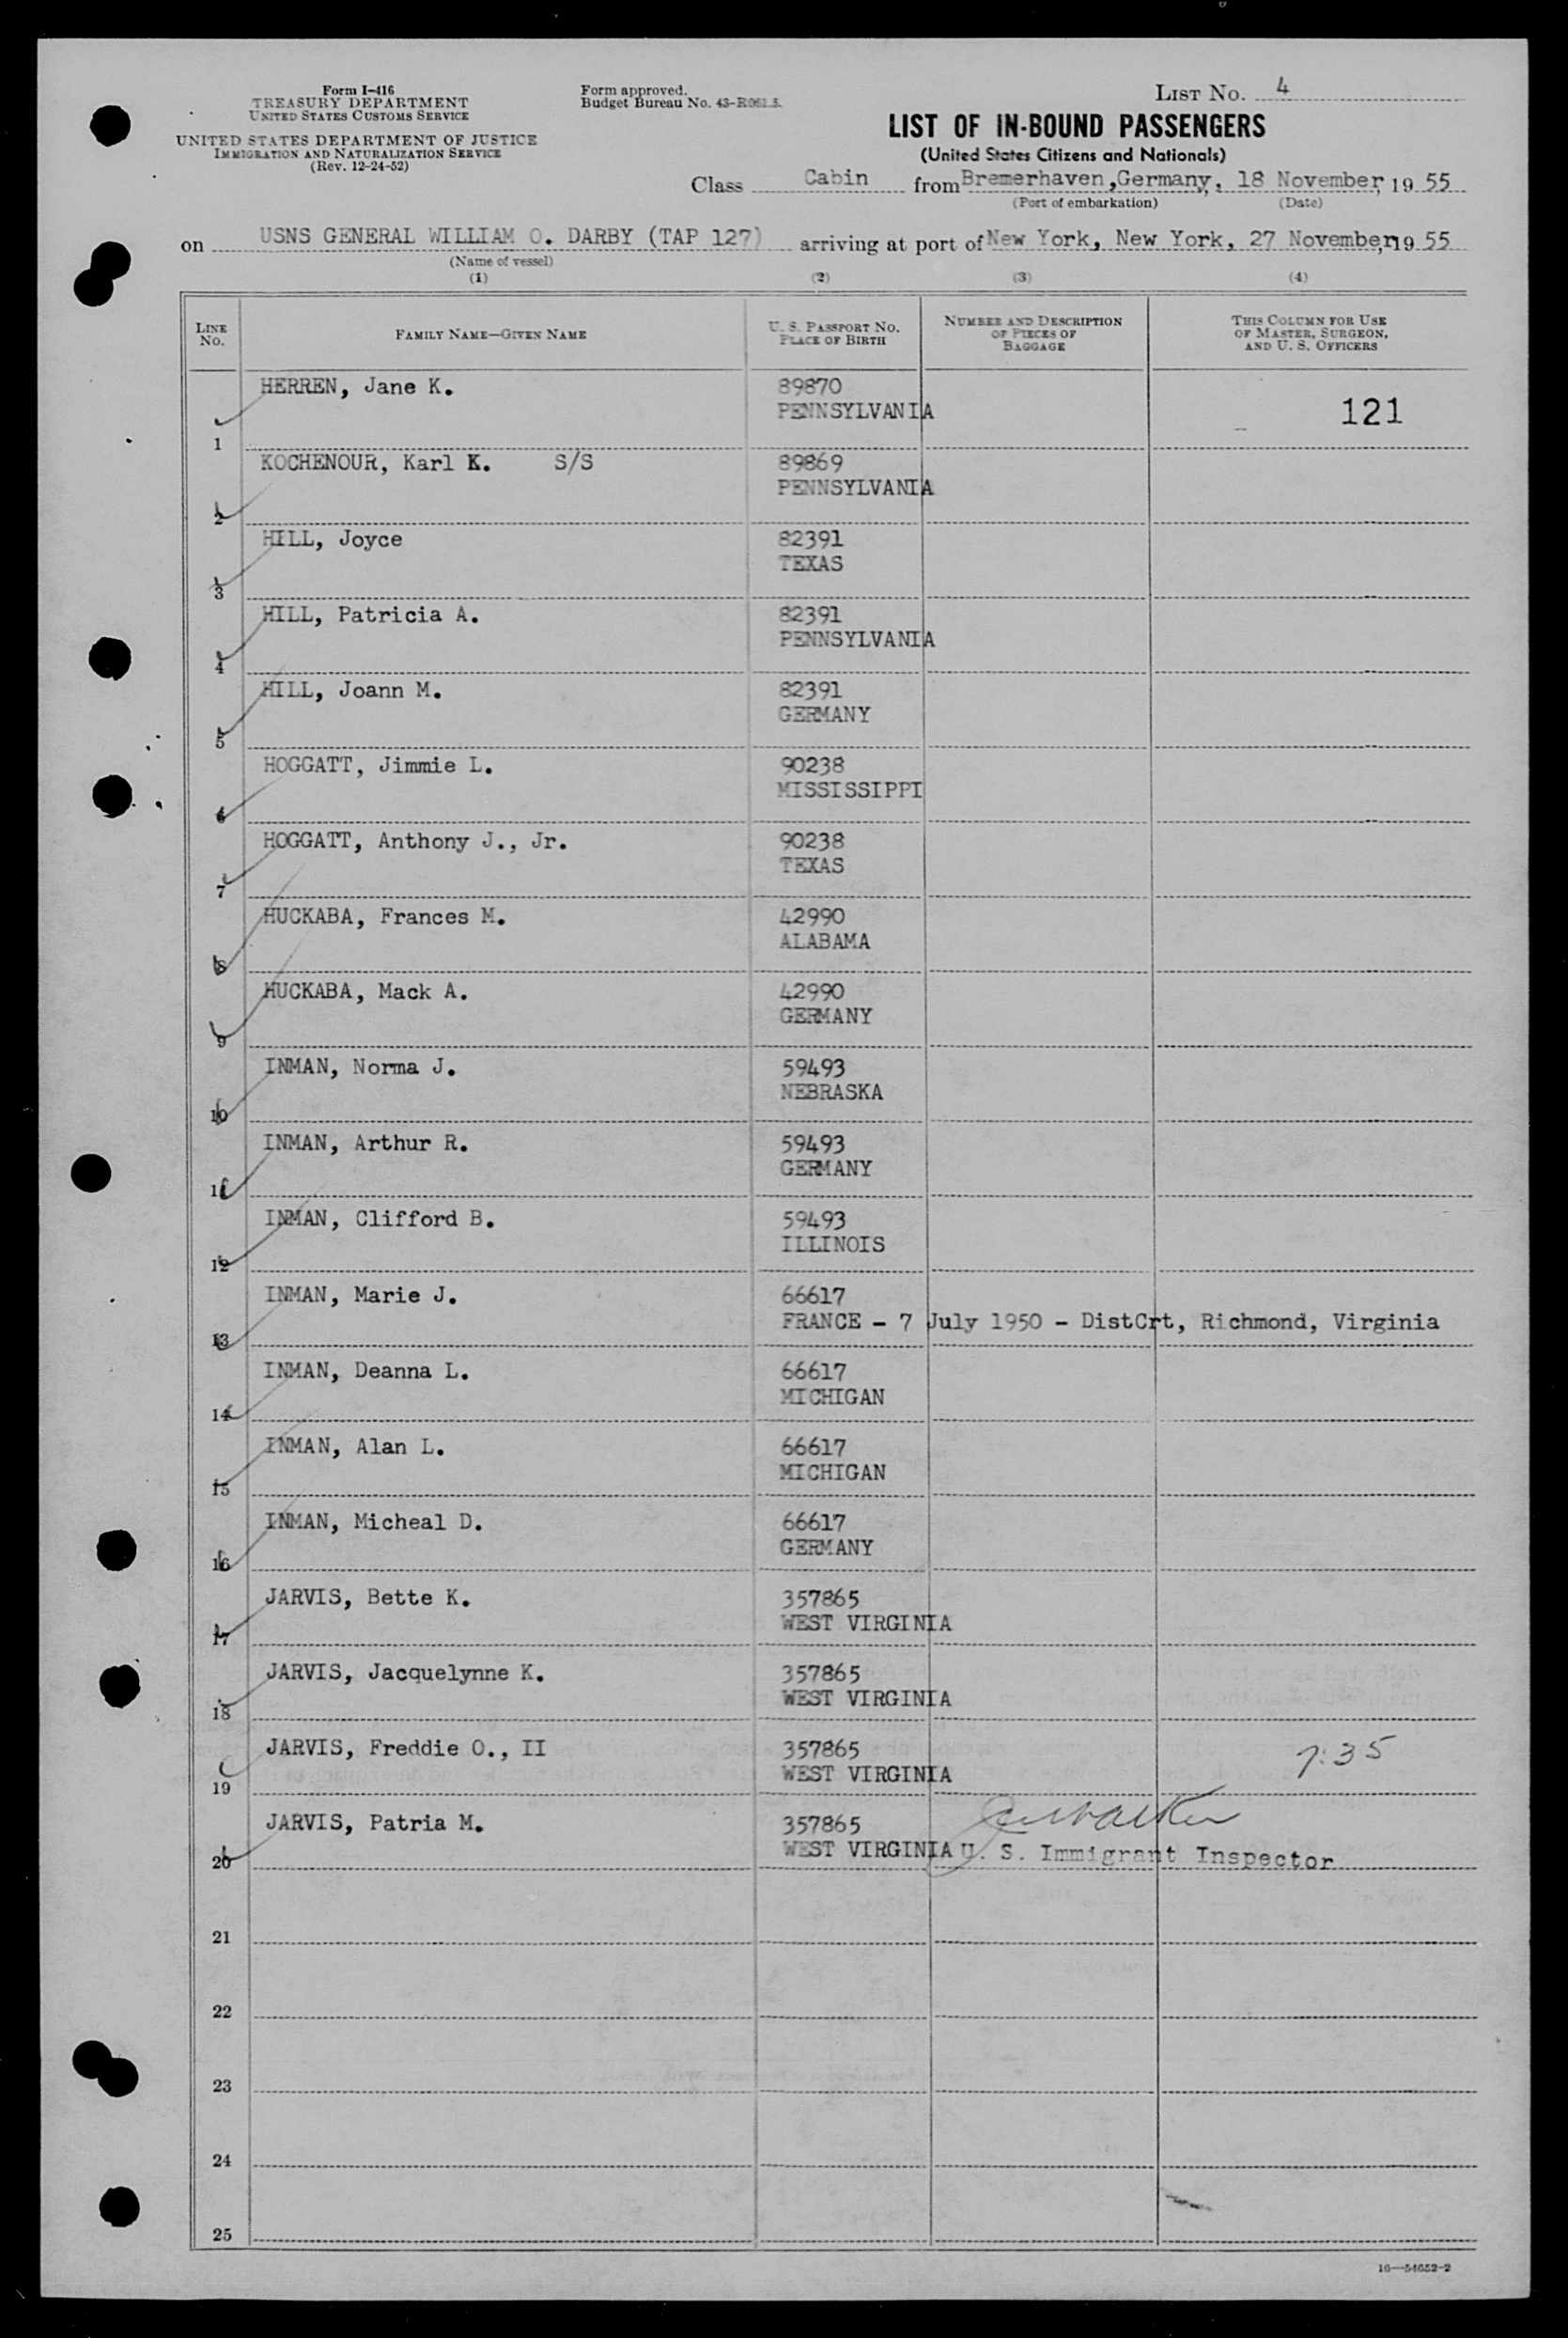 Form I-416
TREASURY DEPARTMENT
UNITED STATES CUSTOMS SERVICE
UNITED STATES DEPARTMENT OF JUSTICE
IMMIGRATION AND NATURALIZATION SERVICE
(Rev. 12-24-52)
Form approved.
Budget Bureau No.
LIST NO. 4
LIST OF IN-BOUND PASSENGERS
(United States Citizens and Nationals)
Class Cabin from Bremerhaven,Germany, 18 November, 19 55
(Port of embarkation) (Date)
on USNS GENERAL WILLIAM O. DARBY (TAP 127) arriving at port of New York, New York, 27 November, 19 55
(Name of vessel)
(1) (2) (3) (4)
LINE NO. FAMILY NAME—GIVEN NAME U. S. PASSPORT NO. PLACE OF BIRTH NUMBER AND DESCRIPTION OF PIECES OF BAGGAGE THIS COLUMN FOR USE OF MASTER, SURGEON, AND U. S. OFFICERS
HERREN, Jane K. 89870
PENNSYLVANIA 121
1
KOCHENOUR, Karl K. S/S 89869
PENNSYLVANIA
2
HILL, Joyce 82391
TEXAS
3
HILL, Patricia A. 82391
PENNSYLVANIA
4
HILL, Joann M. 82391
GERMANY
5
HOGGATT, Jimmie L. 90238
MISSISSIPPI
6
HOGGATT, Anthony J., Jr. 90238
TEXAS
7
HUCKABA, Frances M. 42990
ALABAMA
8
HUCKABA, Mack A. 42990
GERMANY
9
INMAN, Norma J. 59493
NEBRASKA
10
INMAN, Arthur R. 59493
GERMANY
11
INMAN, Clifford B. 59493
ILLINOIS
12
INMAN, Marie J. 66617
FRANCE - 7 July 1950 - DistCrt, Richmond, Virginia
13
INMAN, Deanna L. 66617
MICHIGAN
14
INMAN, Alan L. 66617
MICHIGAN
15
INMAN, Micheal D. 66617
GERMANY
16
JARVIS, Bette K. 357865
WEST VIRGINIA
17
JARVIS, Jacquelynne K. 357865
WEST VIRGINIA
18
JARVIS, Freddie O., II 357865 7:35
WEST VIRGINIA
19
JARVIS, Patria M. 357865
WEST VIRGINIA U. S. Immigrant Inspector
20
21
22
23
24
25
16—54652-2